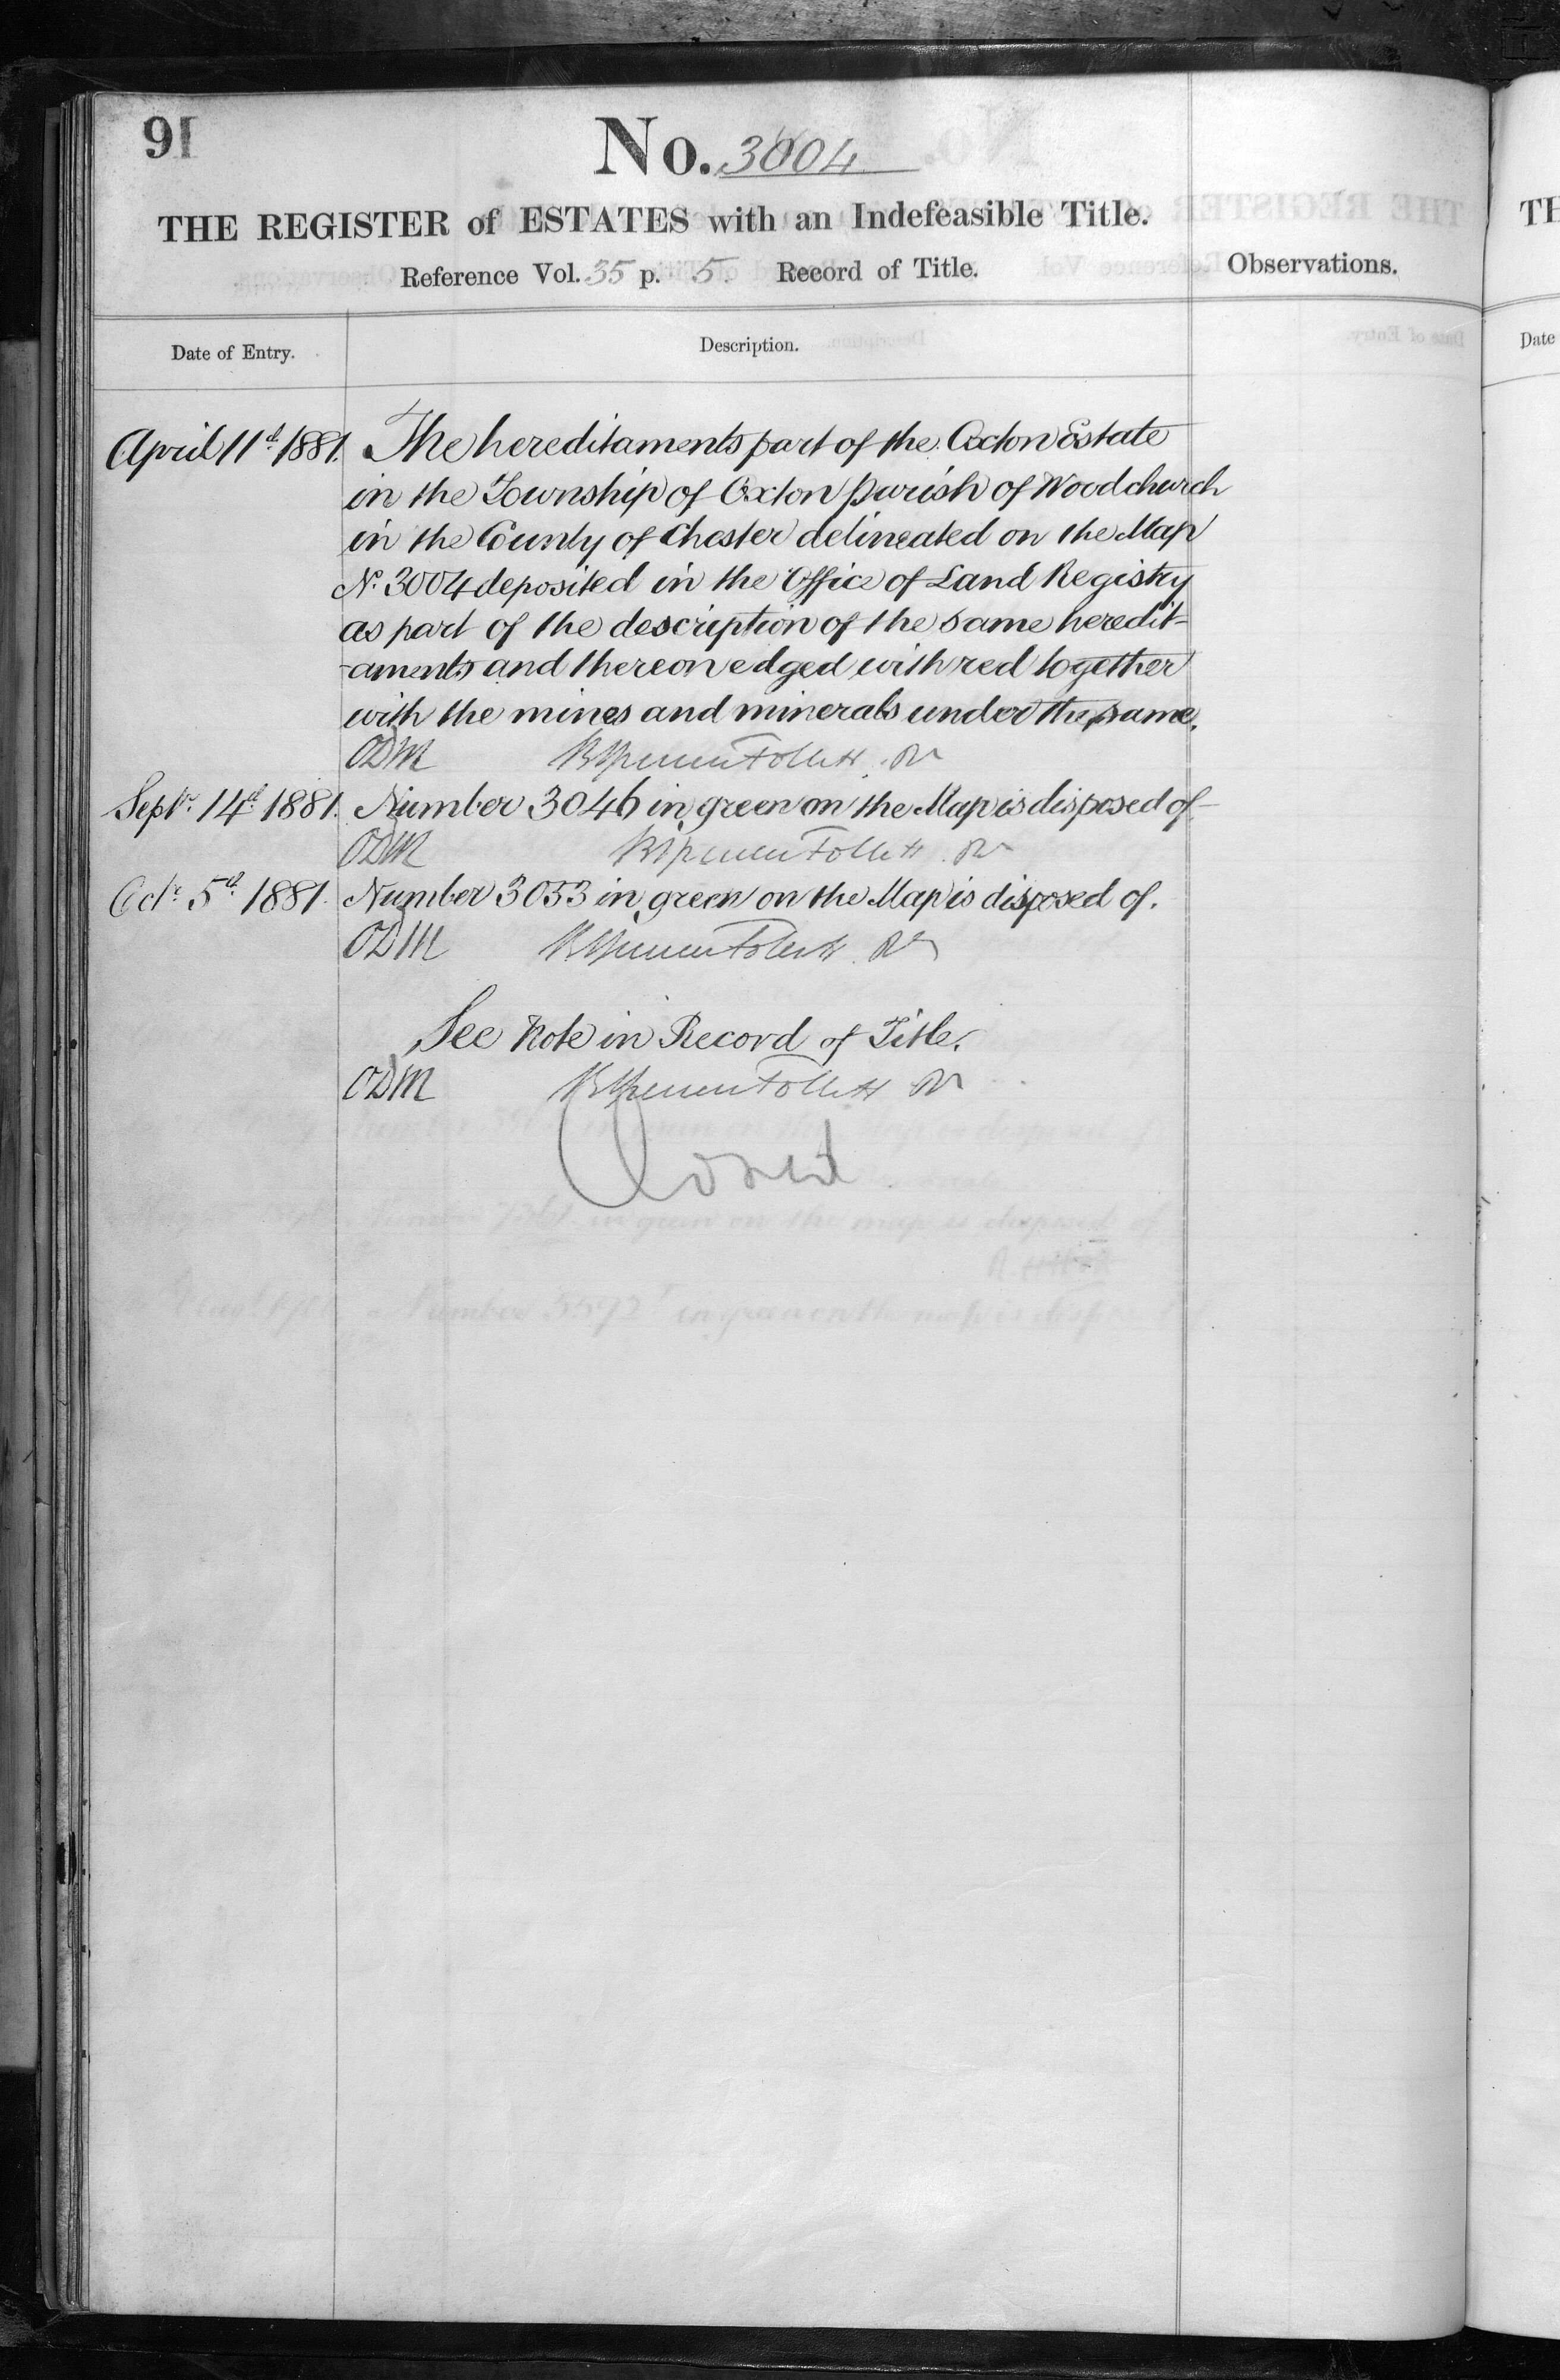 91
No. 3004
THE REGISTER of ESTATES with an Indefeasible Title.
Reference Vol. 35 p. 5. Record of Title.
Observations.
Date of Entry.
Description.
April 11th 1881. The hereditaments part of the Oxton Estate
in the Township of Oxton parish of Woodchurch
in the County of Chester delineated on the Map
No. 3004 deposited in the Office of Land Registry
as part of the description of the same heredit-
-aments and thereon edged with red together
with the mines and minerals under the same.
ODM BSpencerFollett. Rr
Septr. 14th 1881. Number 3046 in green on the Map is disposed of
ODM BSpencerFollett. Rr
Octr. 5th 1881. Number 3053 in green on the Map is disposed of.
ODM BSpencerFollett. Rr
See Note in Record of Title.
ODM BSpencerFollett Rr
Closed
TH
Date